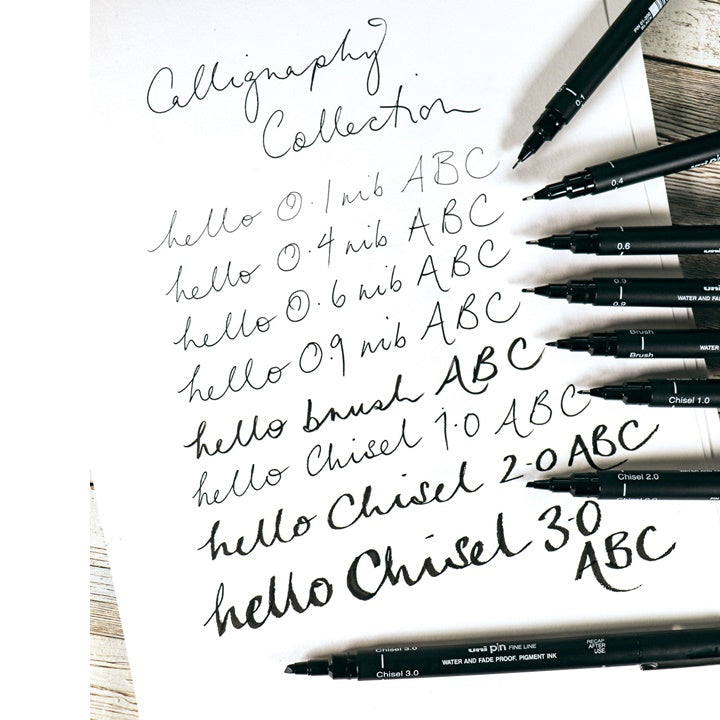 Calligraphy
Collection
hello 0.1 nib ABC
hello 0.4 nib ABC
hello 0.6 nib ABC
hello 0.9 nib ABC
hello brush ABC
hello Chisel 1.0 ABC
hello Chisel 2.0 ABC
hello Chisel 3.0
ABC
0.1
0.4
0.6
0.9
0.9
uni
WATER AND FA
Brush
Brush
WATER
Chisel 1.0
Chisel 2.0
Chisel 3.0
Chisel 3.0
uni pin FINE LINE
WATER AND FADE PROOF. PIGMENT INK
RECAP
AFTER
USE